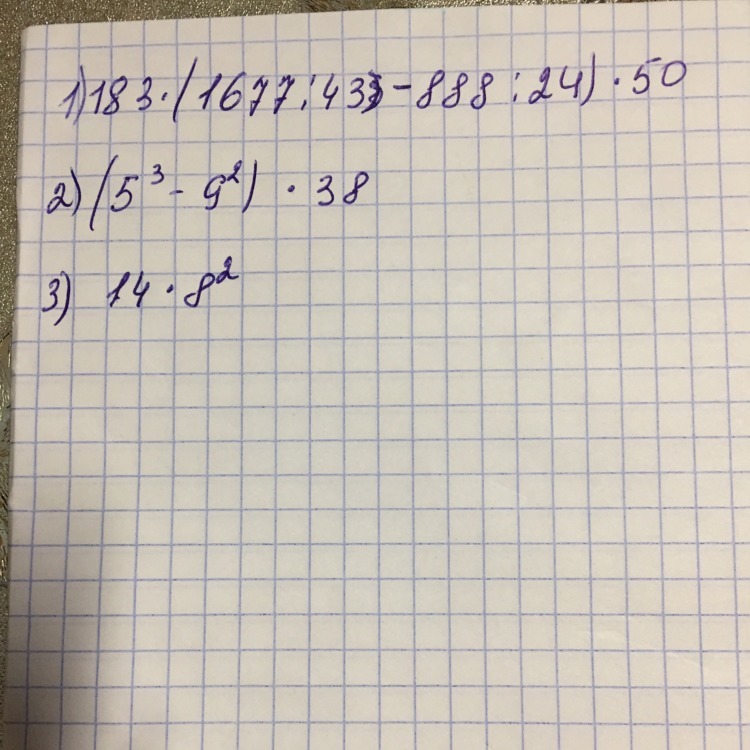 1) 183 · (1677 : 43 - 888 : 24) · 50
2) (5³ - 9²) · 38
3) 14 · 8²